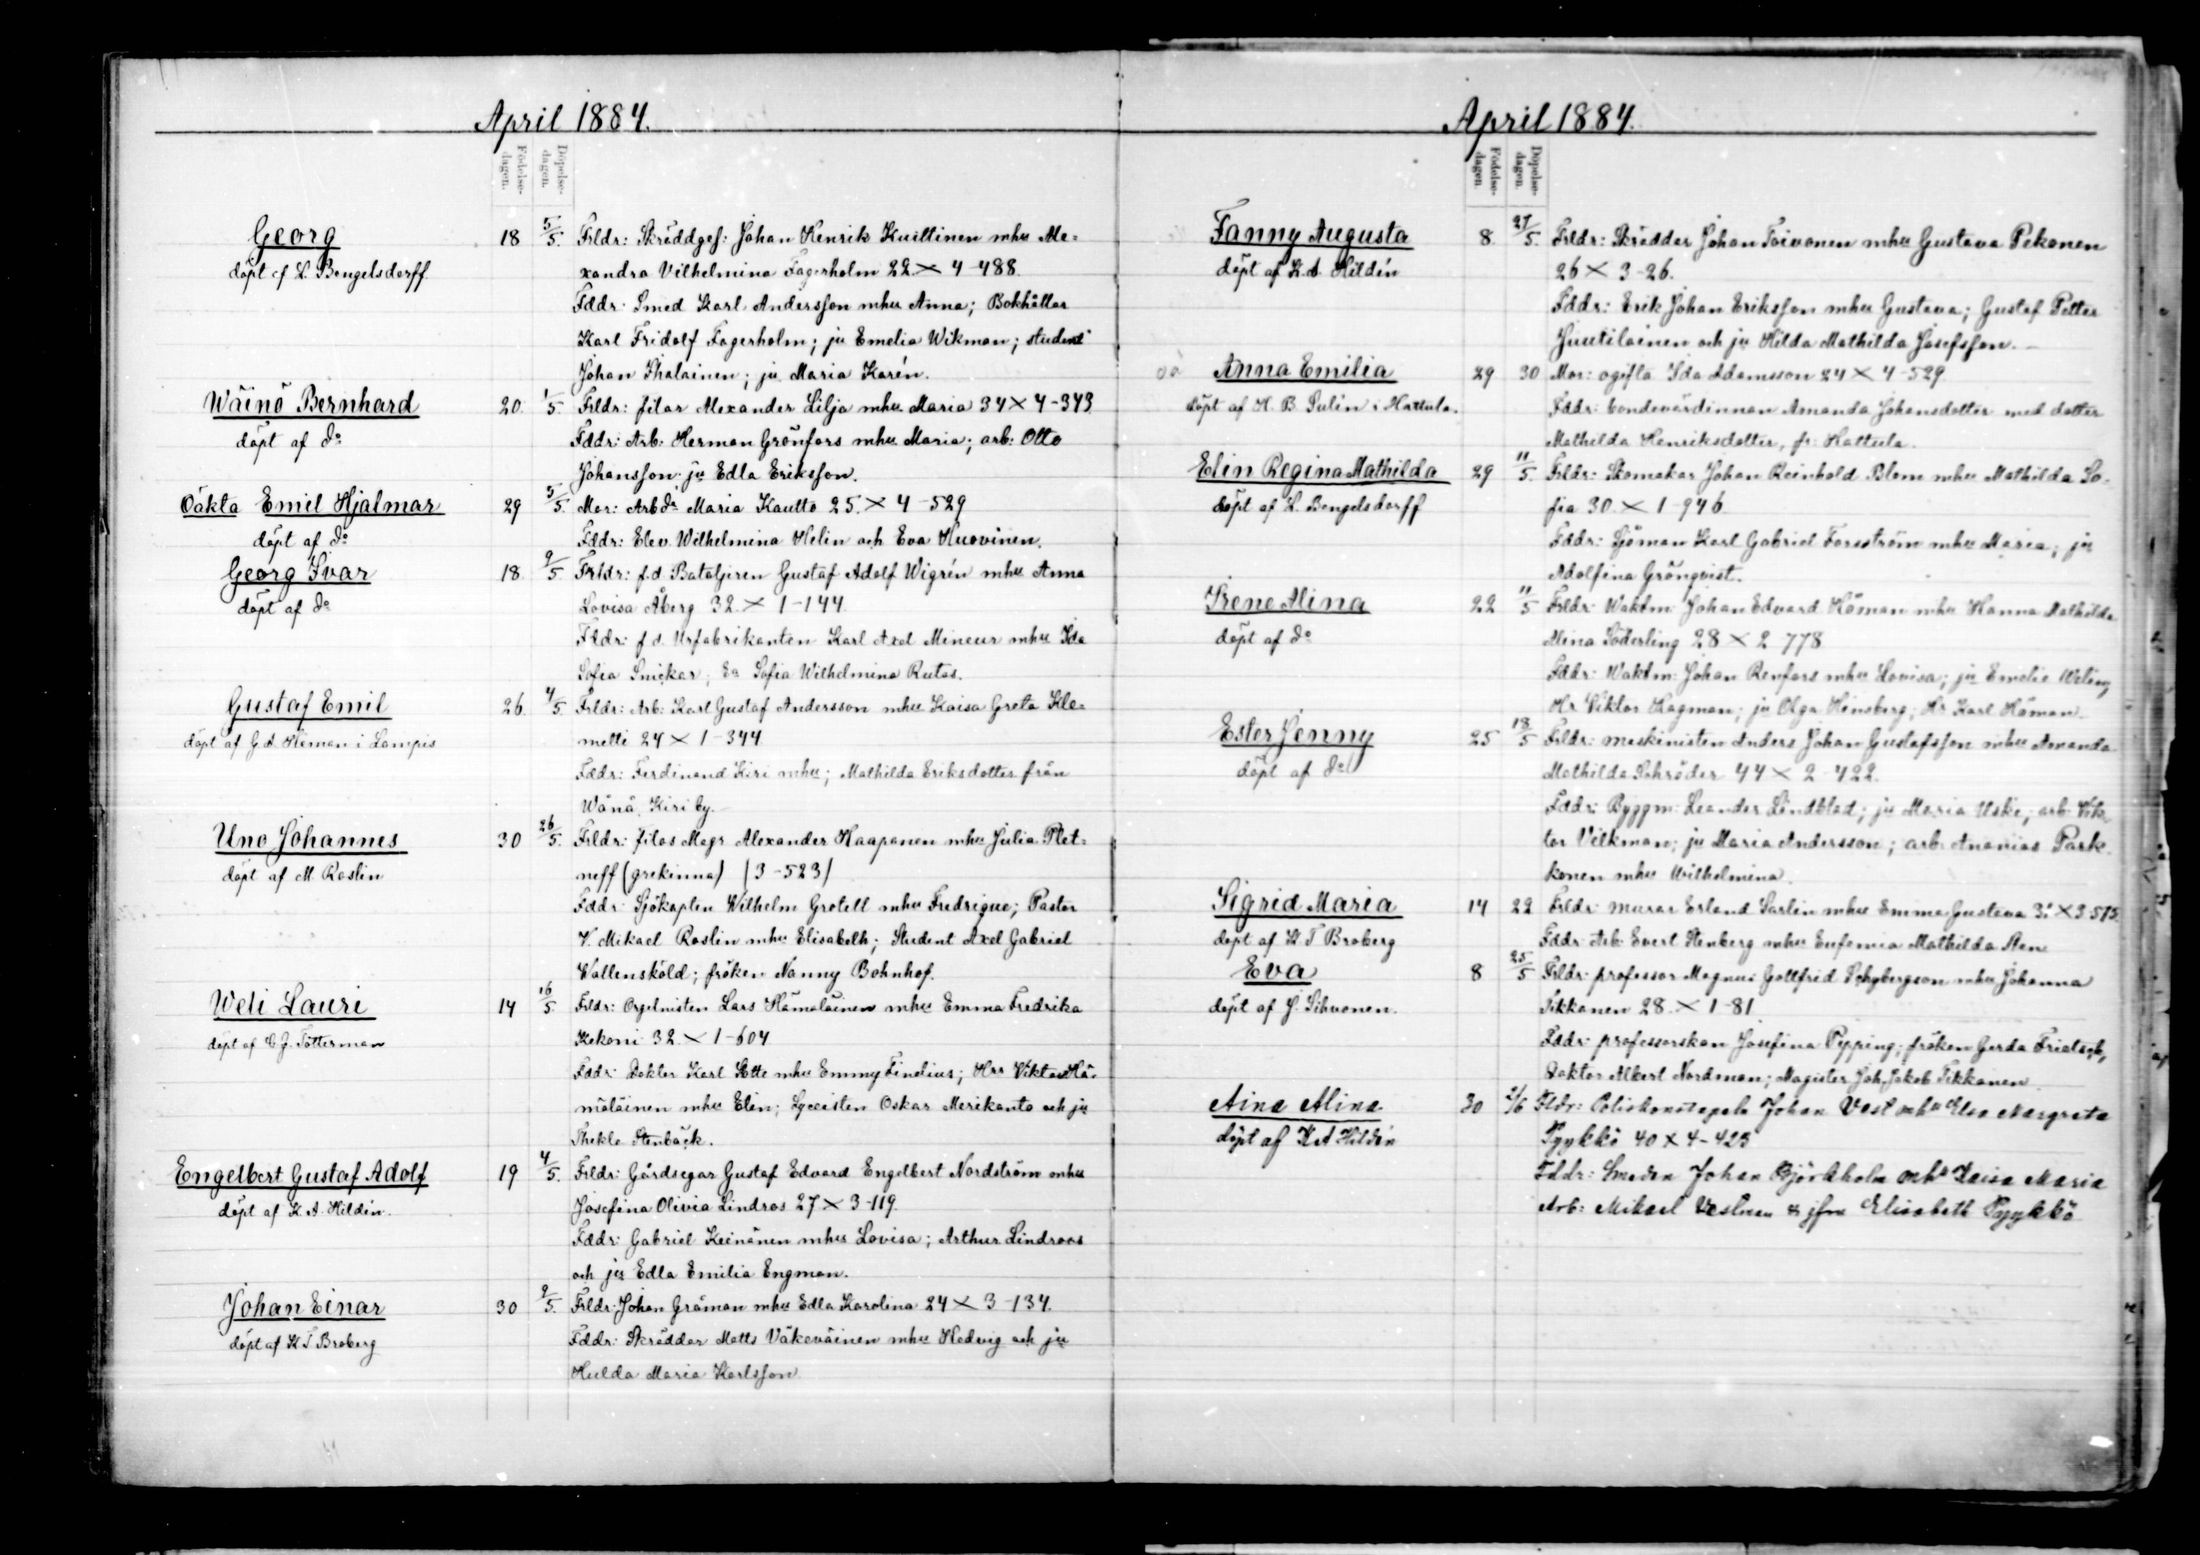 April 1884.
Födelse-dagen.
Döpelse-dagen.
Georg
döpt af L. Bengelsdorff
18 5/5. Frldr: Skräddges: Johan Henrik Kuittinen mhu Ale=
xandra Vilhelmina Fagerholm 22 × 4-488.
Fddr: Smed Karl Andersson mhu Anna; Bokhållar
Karl Fridolf Fagerholm; ju Emelia Wikman; student
Johan Ihalainen; ju Maria Karén.
Wäinö Bernhard
döpt af do
20. 1/5. Frldr: filar Alexander Lilja mhu Maria 34 × 4-343
Fddr: Arb: Herman Grönfors mhu Maria; arb: Otto
Johansson ju Edla Eriksson.
Oäkta Emil Hjalmar
döpt af do
29 5/5. Mor: Arbda Maria Kautto 25. × 4-529
Fddr: Elev. Wilhelmina Helin och Eva Huovinen.
Georg Ivar
döpt af do
18. 9/5 Frldr: f.d. Bataljeren Gustaf Adolf Wigrén mhu Anna
Lovisa Åberg 32. × 1-144.
Fddr: f d. Urfabrikanten Karl Axel Mineur mhu Ida
Sofia Snickar; Ea Sofia Wilhelmina Rutas.
Gustaf Emil
döpt af G.A. Heman i Lampis
26. 4/5. Frldr: Arb: Karl Gustaf Andersson mhu Kaisa Greta Kle=
metti 24 × 1-344
Fddr: Ferdinand Kiri mhu; Mathilda Eriksdotter från
Wånå, Kiri by.
Uno Johannes
döpt af M. Roslin
30 26/5. Frldr: filos Magr Alexander Haapanen mhu Julia Plet=
neff (grekinna) (3-523)
Fddr: Sjökapten Wilhelm Grotell mhu Fredrique; Pastor
V. Mikael Roslin mhu Elisabeth; Student Axel Gabriel
Wallensköld; fröken Nanny Bohnhof.
Weli Lauri
döpt af C.J. Totterman
14 16/5. Frldr: Orgelnisten Lars Hämäläinen mhu Emma Fredrika
Kekoni 32. × 1-604
Fddr: Doktor Karl Sotte mhu Emmy Finelius; Hrr Viktor Hä-
mäläinen mhu Elin; Lyceisten Oskar Merikanto och ju
Thekla Stenbäck.
Engelbert Gustaf Adolf
döpt af K. A. Hildén.
19 4/5. Frldr: Gårdsegar Gustaf Edvard Engelbert Nordström mhu
Josefina Olivia Lindros 27 × 3-119.
Fddr: Gabriel Keinänen mhu Lovisa; Arthur Lindroos
och ju Edla Emilia Engman.
Johan Einar
döpt af K T Broberg
30 9/5. Frldr: Johan Gråman mhu Edla Karolina 24 × 3-134.
Fddr: Skräddar Matts Väkeväinen mhu Hedvig och ju
Hulda Maria Karlsson
April 1884.
Födelse-dagen.
Döpelse-dagen.
Fanny Augusta
döpt af K. A. Hildén
8. 27/5. Frldr: Skräddar Johan Toivonen mhu Gustava Pekonen
26 × 3-26.
Fddr: Erik Johan Eriksson mhu Gustava; Gustaf Petter
Juutilainen och ju Hilda Mathilda Josefsson.
oä Anna Emilia
döpt af H. B. Sulin i Hattula.
29 30 Mor: ogifta Ida Adamsson 24 × 4-529
Fddr: bondevärdinnan Amanda Johansdotter med dotter
Mathilda Henriksdotter, fr: Hattula.
Elin Regina Mathilda
döpt af L. Bengelsdorff
29 11/5. Frldr: Skomakar Johan Reinhold Blom mhu Mathilda So-
fia 30. × 1-946
Fddr: Sjöman Karl Gabriel Forsström mhu Maria; ju
Adolfina Grönqvist.
Irene Alina
döpt af do
22 11/5 Frldr: Waktm Johan Edvard Häman mhu Hanna Mathilda
Mina Söderling 28 × 2-778
Fddr: Waktm: Johan Renfors mhu Lovisa; ju Emelie Weling
Hr Viktor Hagman; ju Olga Hensberg; Hr Karl Häman
Ester Jenny
döpt af do
25 18/5 Frldr: maskinisten Anders Johan Gustafsson mhu Amanda
Mathilda Schröder 44 × 2-422.
Fddr: Byggm: Leander Lindblad; ju Maria Uski; arb: Vik-
tor Vilkman; ju Maria Andersson; arb: Ananias Park-
konen mhu Wilhelmina.
Sigrid Maria
döpt af K T Broberg
14 22 Frldr: murar Erland Sarlin mhu Emma Gustava × 3 515
Fddr: Arb: Evert Stenberg mhu Eufemia Mathilda Sten
Eva
döpt af J. Sihvonen.
8 25/5 Frldr: professor Magnus Gottfrid Schybergson mhu Johanna
Tikkanen 28. × 1-81
Fddr: professorskan Josefina Pipping; fröken Gerda
Doktor Albert Nordman; Magister Joh. Jakob Tikkanen
Aina Alina
döpt af K A Hildén
30 2/6 Fldr: Poliskonstapeln Johan Vest mhu Elsa Margreta
Pyykkö 40 × 4-423
Fddr: Smeden Johan Björkholm mhu Kaisa Maria
Arb: Mikael & jfru Elisabeth Pyykkö